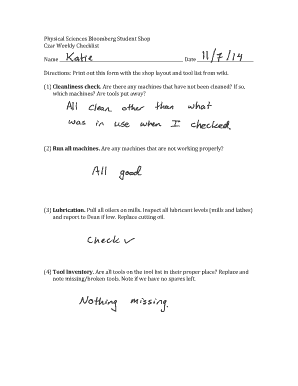 Physical Sciences Bloomberg Student Shop
Czar Weekly Checklist
Name Katie Date 11/7/14
Directions: Print out this form with the shop layout and tool list from wiki.
(1) Cleanliness check. Are there any machines that have not been cleaned? If so,
which machines? Are tools put away?
All clean other than what
was in use when I checked.
(2) Run all machines. Are any machines that are not working properly?
All good
(3) Lubrication. Pull all oilers on mills. Inspect all lubricant levels (mills and lathes)
and report to Dean if low. Replace cutting oil.
Check ✓
(4) Tool inventory. Are all tools on the tool list in their proper place? Replace and
note missing/broken tools. Note if we have no spares left.
Nothing missing.